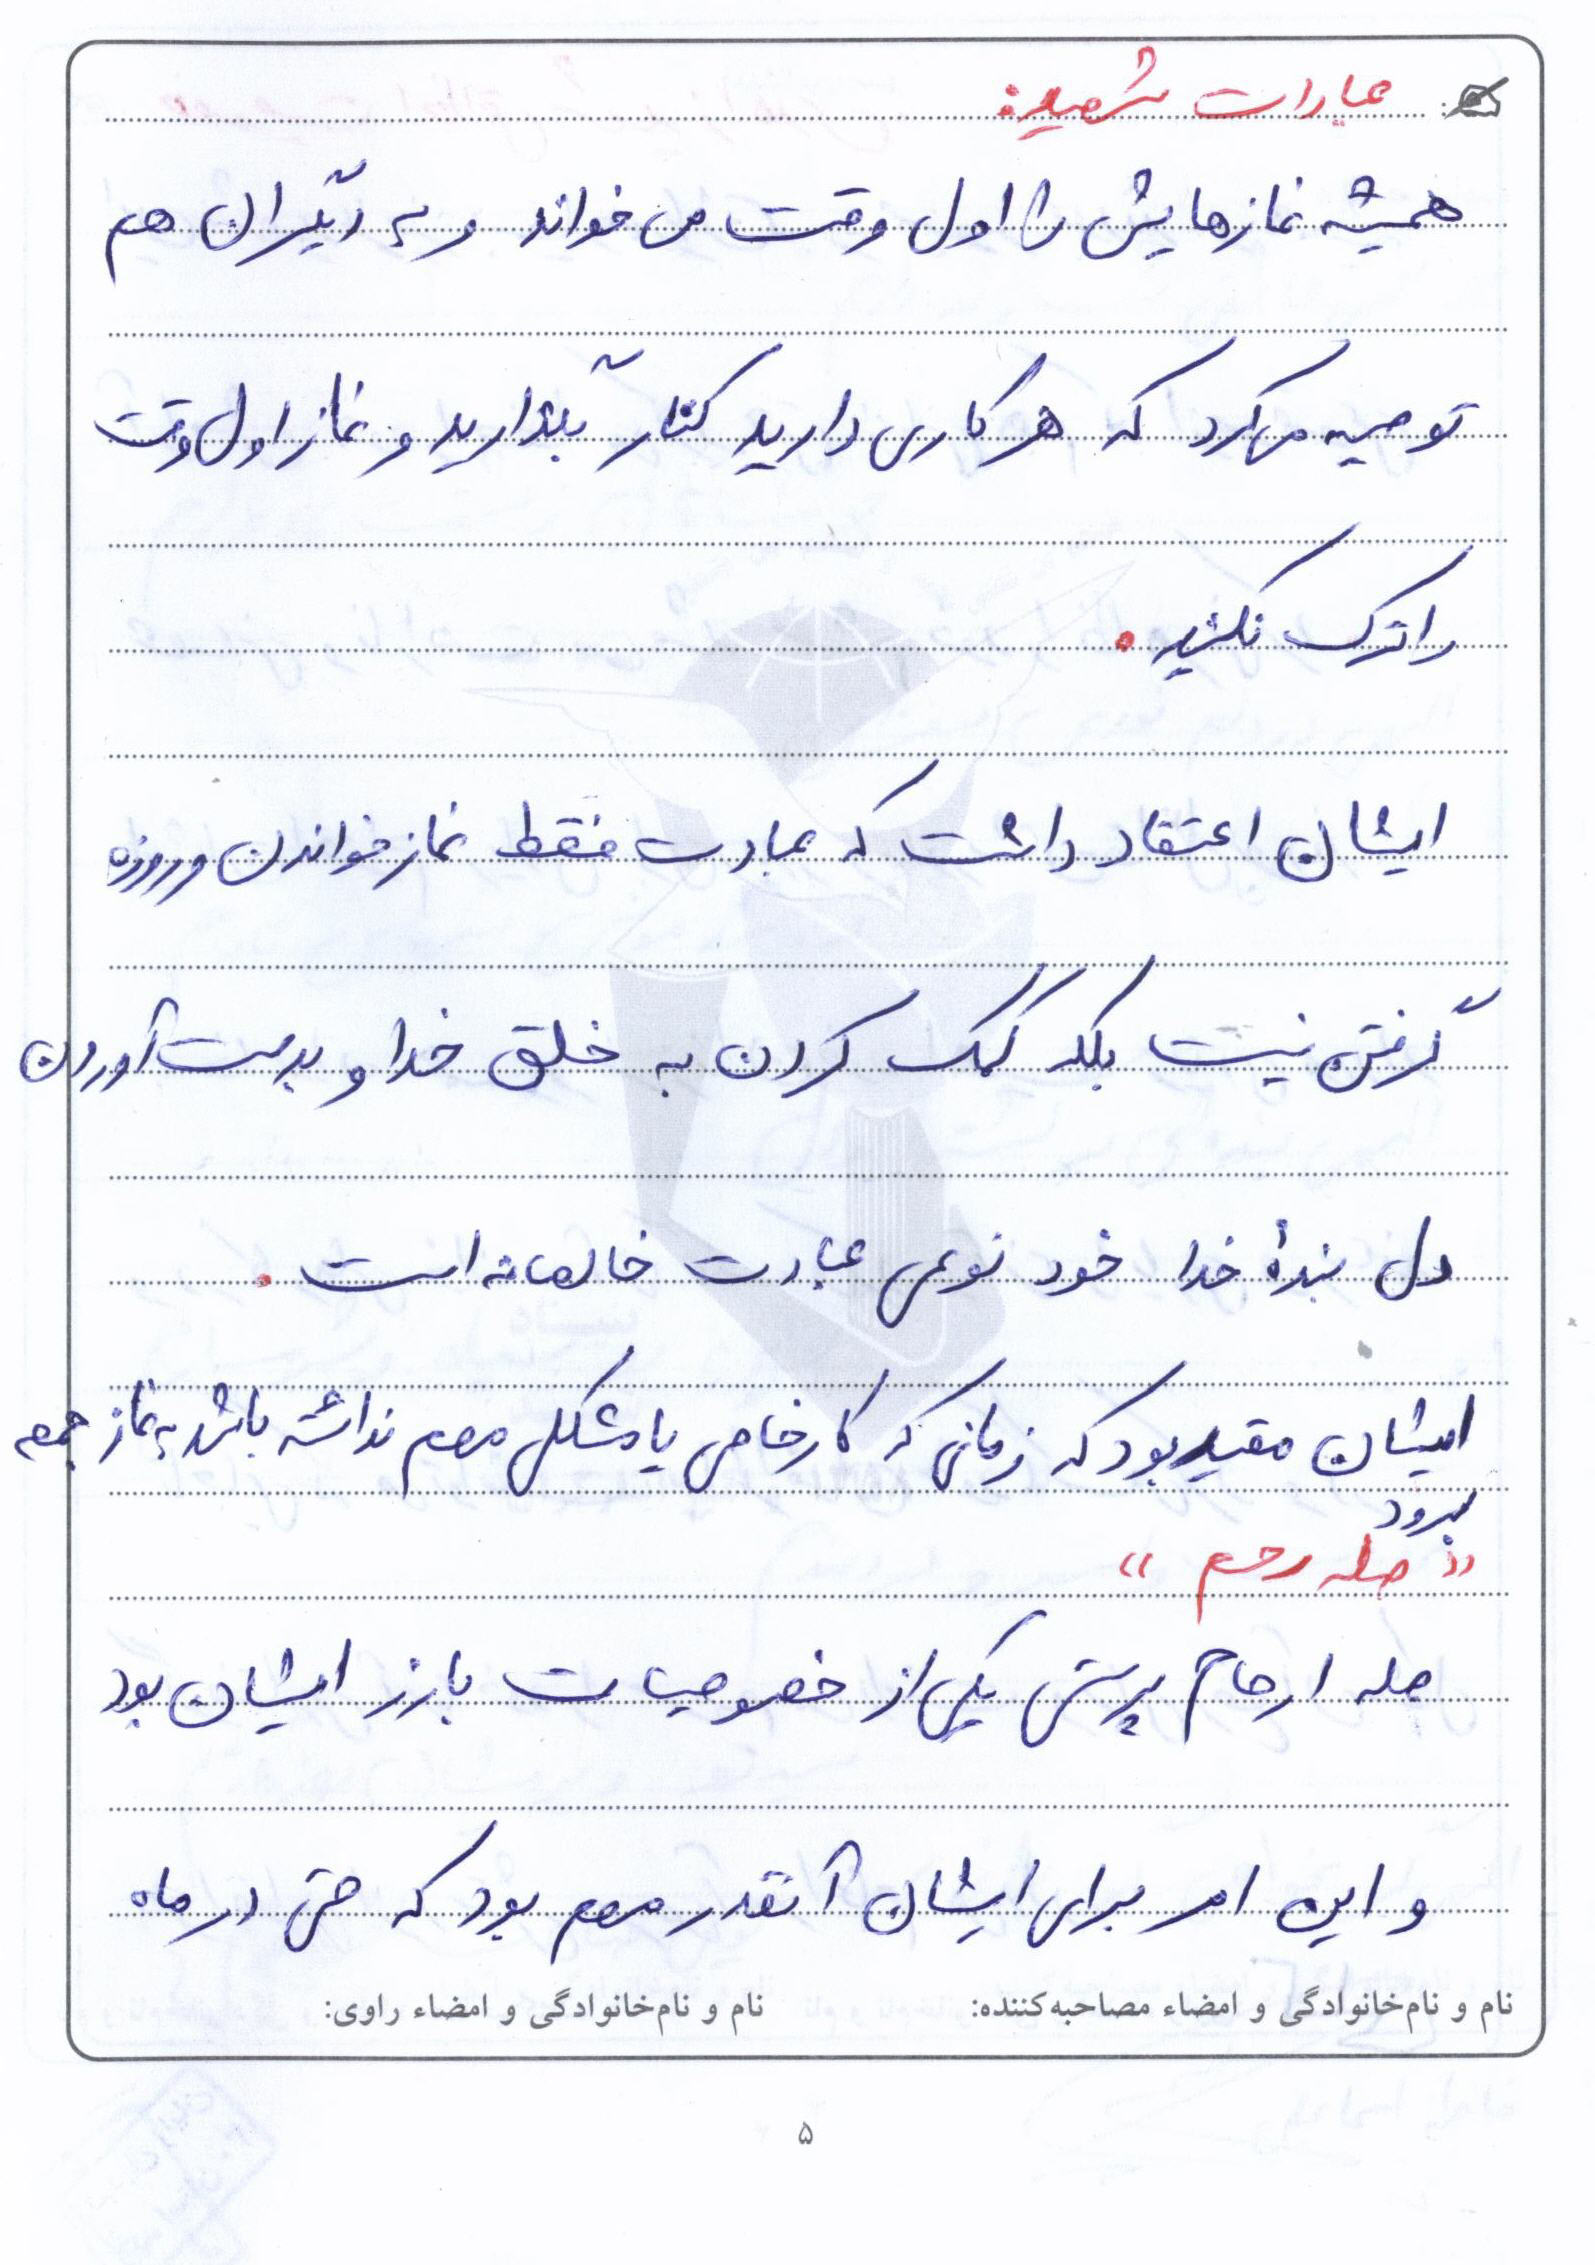 عبادات شهید:
همیشه نمازهایش را اول وقت می‌خواند و به دیگران هم
توصیه می‌کرد که هر کاری دارید کنار بگذارید و نماز اول وقت
را ترک نکنید.
ایشان اعتقاد داشت که عبادت فقط نماز خواندن و روزه
گرفتن نیست بلکه کمک کردن به خلق خدا و بدست آوردن
دل بندهٔ خدا خود نوعی عبادت خالصانه است.
ایشان مقید بود که زمانی که کار خاصی یا مشکلی مهم نداشته باشد به نماز جمعه
برود
«صله رحم»
صله ارحام پرستی یکی از خصوصیات بارز ایشان بود
و این امر برای ایشان آنقدر مهم بود که حتی در ماه
نام و نام‌خانوادگی و امضاء مصاحبه‌کننده: نام و نام‌خانوادگی و امضاء راوی:
۵